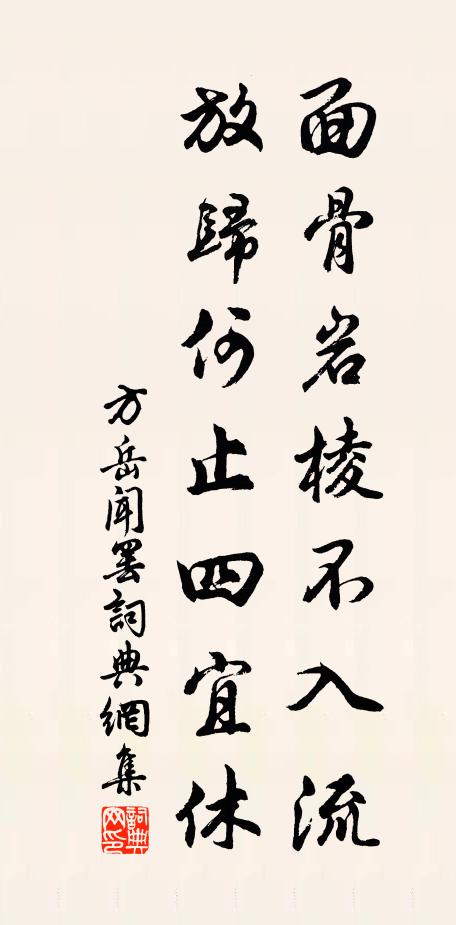 面骨岩棱不入流
放歸何止四宜休
方岳聞罢詞典網集
詞典網印